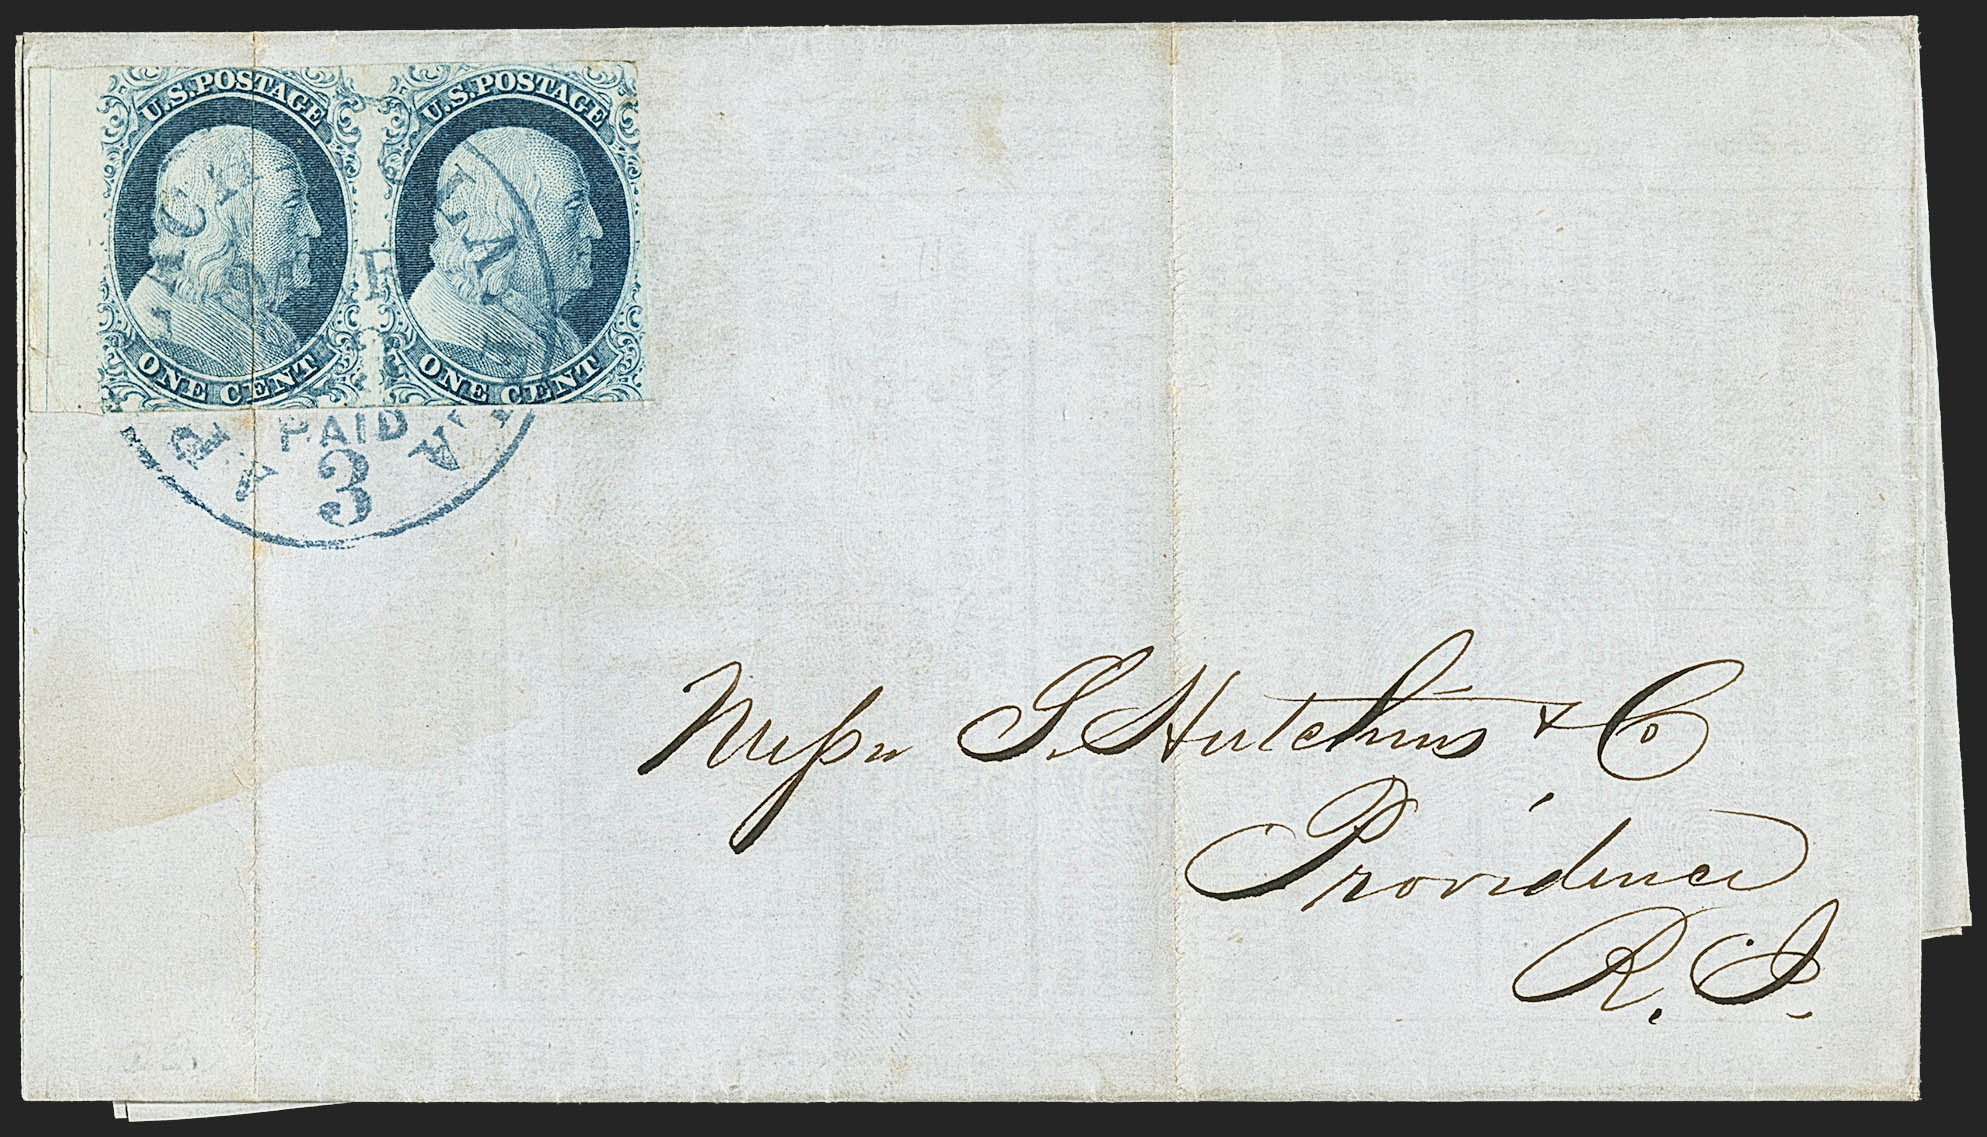 U.S. POSTAGE U.S. POSTAGE
ONE CENT ONE CENT
PAID
3
Messrs S. Hutchins & Co
Providence
R. I.